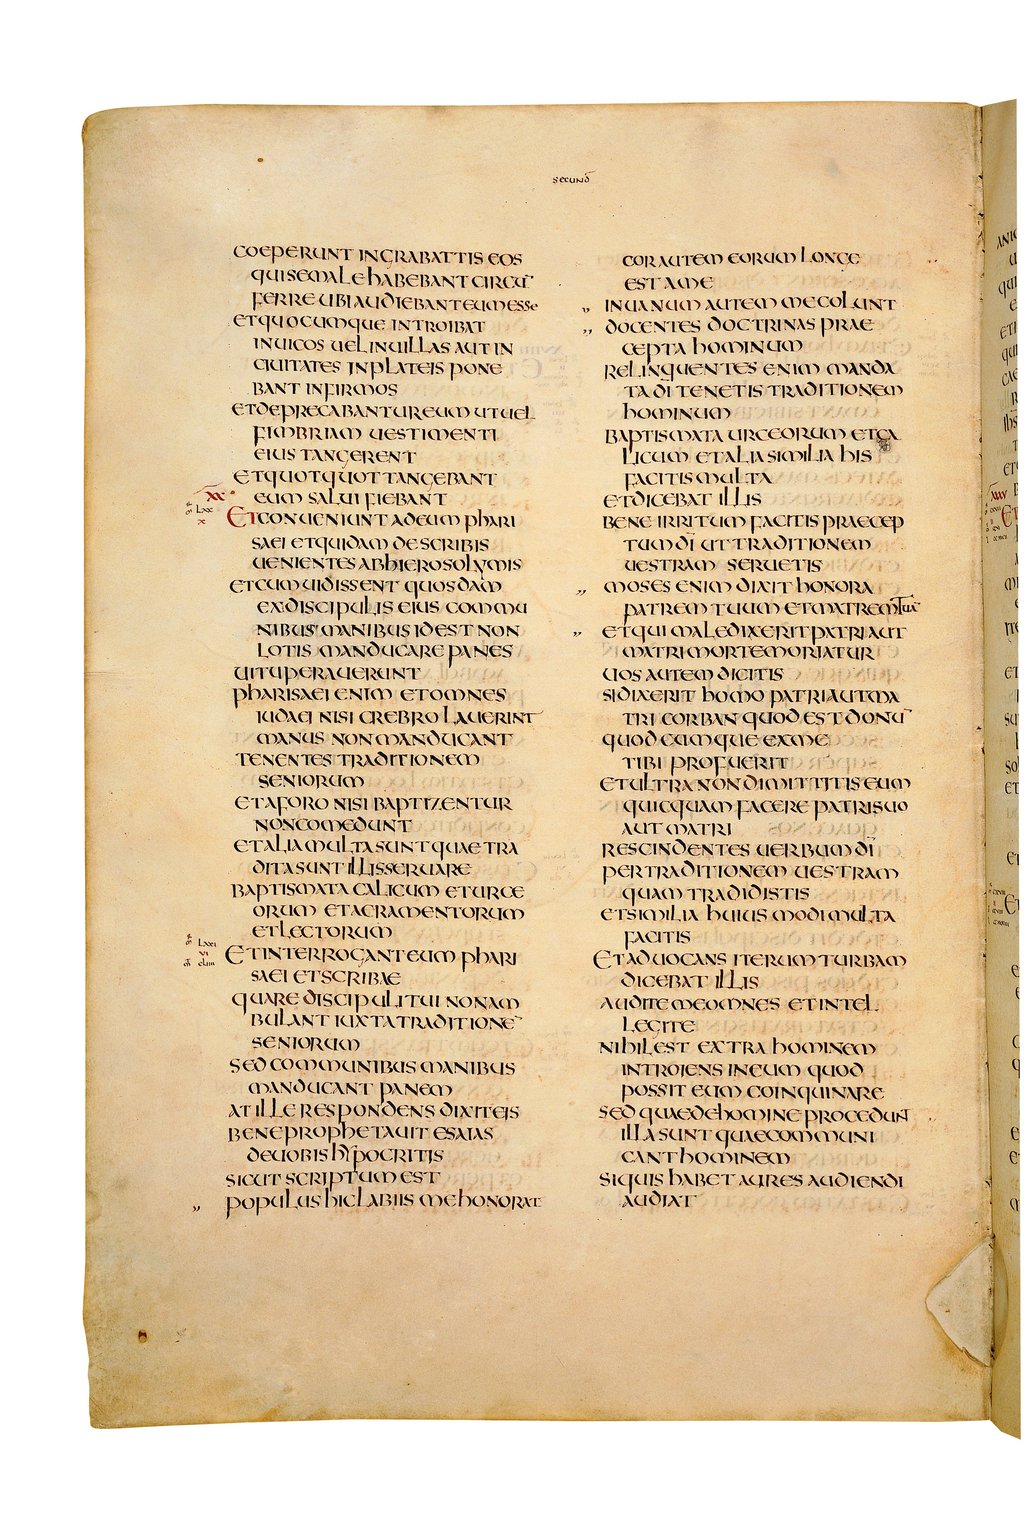 secund̄
coeperunt in grabattis eos
qui se male habebant circū
ferre ubi audiebant eum esse
et quocumque introibat
in uicos uel in uillas aut in
ciuitates in plateis pone
bant infirmos
et deprecabantur eum ut uel
fimbriam uestimenti
eius tangerent
et quotquot tangebant
xx eum salui fiebant
Lxx
x
Et conueniunt ad eum phari
saei et quidam de scribis
uenientes ab hierosolymis
et cum uidissent quosdam
ex discipulis eius commu
nibus manibus id est non
lotis manducare panes
uituperauerunt
pharisaei enim et omnes
iudaei nisi crebro lauerint
manus non manducant
tenentes traditionem
seniorum
et a foro nisi baptizentur
non comedunt
et alia multa sunt quae tra
dita sunt illis seruare
baptismata calicum et urce
orum et aeramentorum
et lectorum
Lxxi
ui
Et interrogant eum phari
saei et scribae
quare discipuli tui non am
bulant iuxta traditionē
seniorum
sed communibus manibus
manducant panem
at ille respondens dixit eis
bene prophetauit esaias
de uobis hypocritis
sicut scriptum est
,, populus hic labiis me honorat
cor autem eorum longe
est a me
,, in uanum autem me colunt
,, docentes doctrinas prae
cepta hominum
relinquentes enim manda
ta di tenetis traditionem
hominum
baptismata urceorum et ca
licum et alia similia his
facitis multa
et dicebat illis
bene irritum facitis praecep
tum dī ut traditionem
uestram seruetis
,, moses enim dixit honora
patrem tuum et matrem tuā
,, et qui maledixerit patri aut
matri morte moriatur
uos autem dicitis
si dixerit homo patri aut ma
tri corban quod est donū
quodcumque ex me
tibi profuerit
et ultra non dimittitis eum
quicquam facere patri suo
aut matri
rescindentes uerbum dī
per traditionem uestram
quam tradidistis
et similia huius modi multa
facitis
Et aduocans iterum turbam
dicebat illis
audite me omnes et intel
legite
nihil est extra hominem
introiens in eum quod
possit eum coinquinare
sed quae de homine procedunt
illa sunt quae communi
cant hominem
si quis habet aures audiendi
audiat